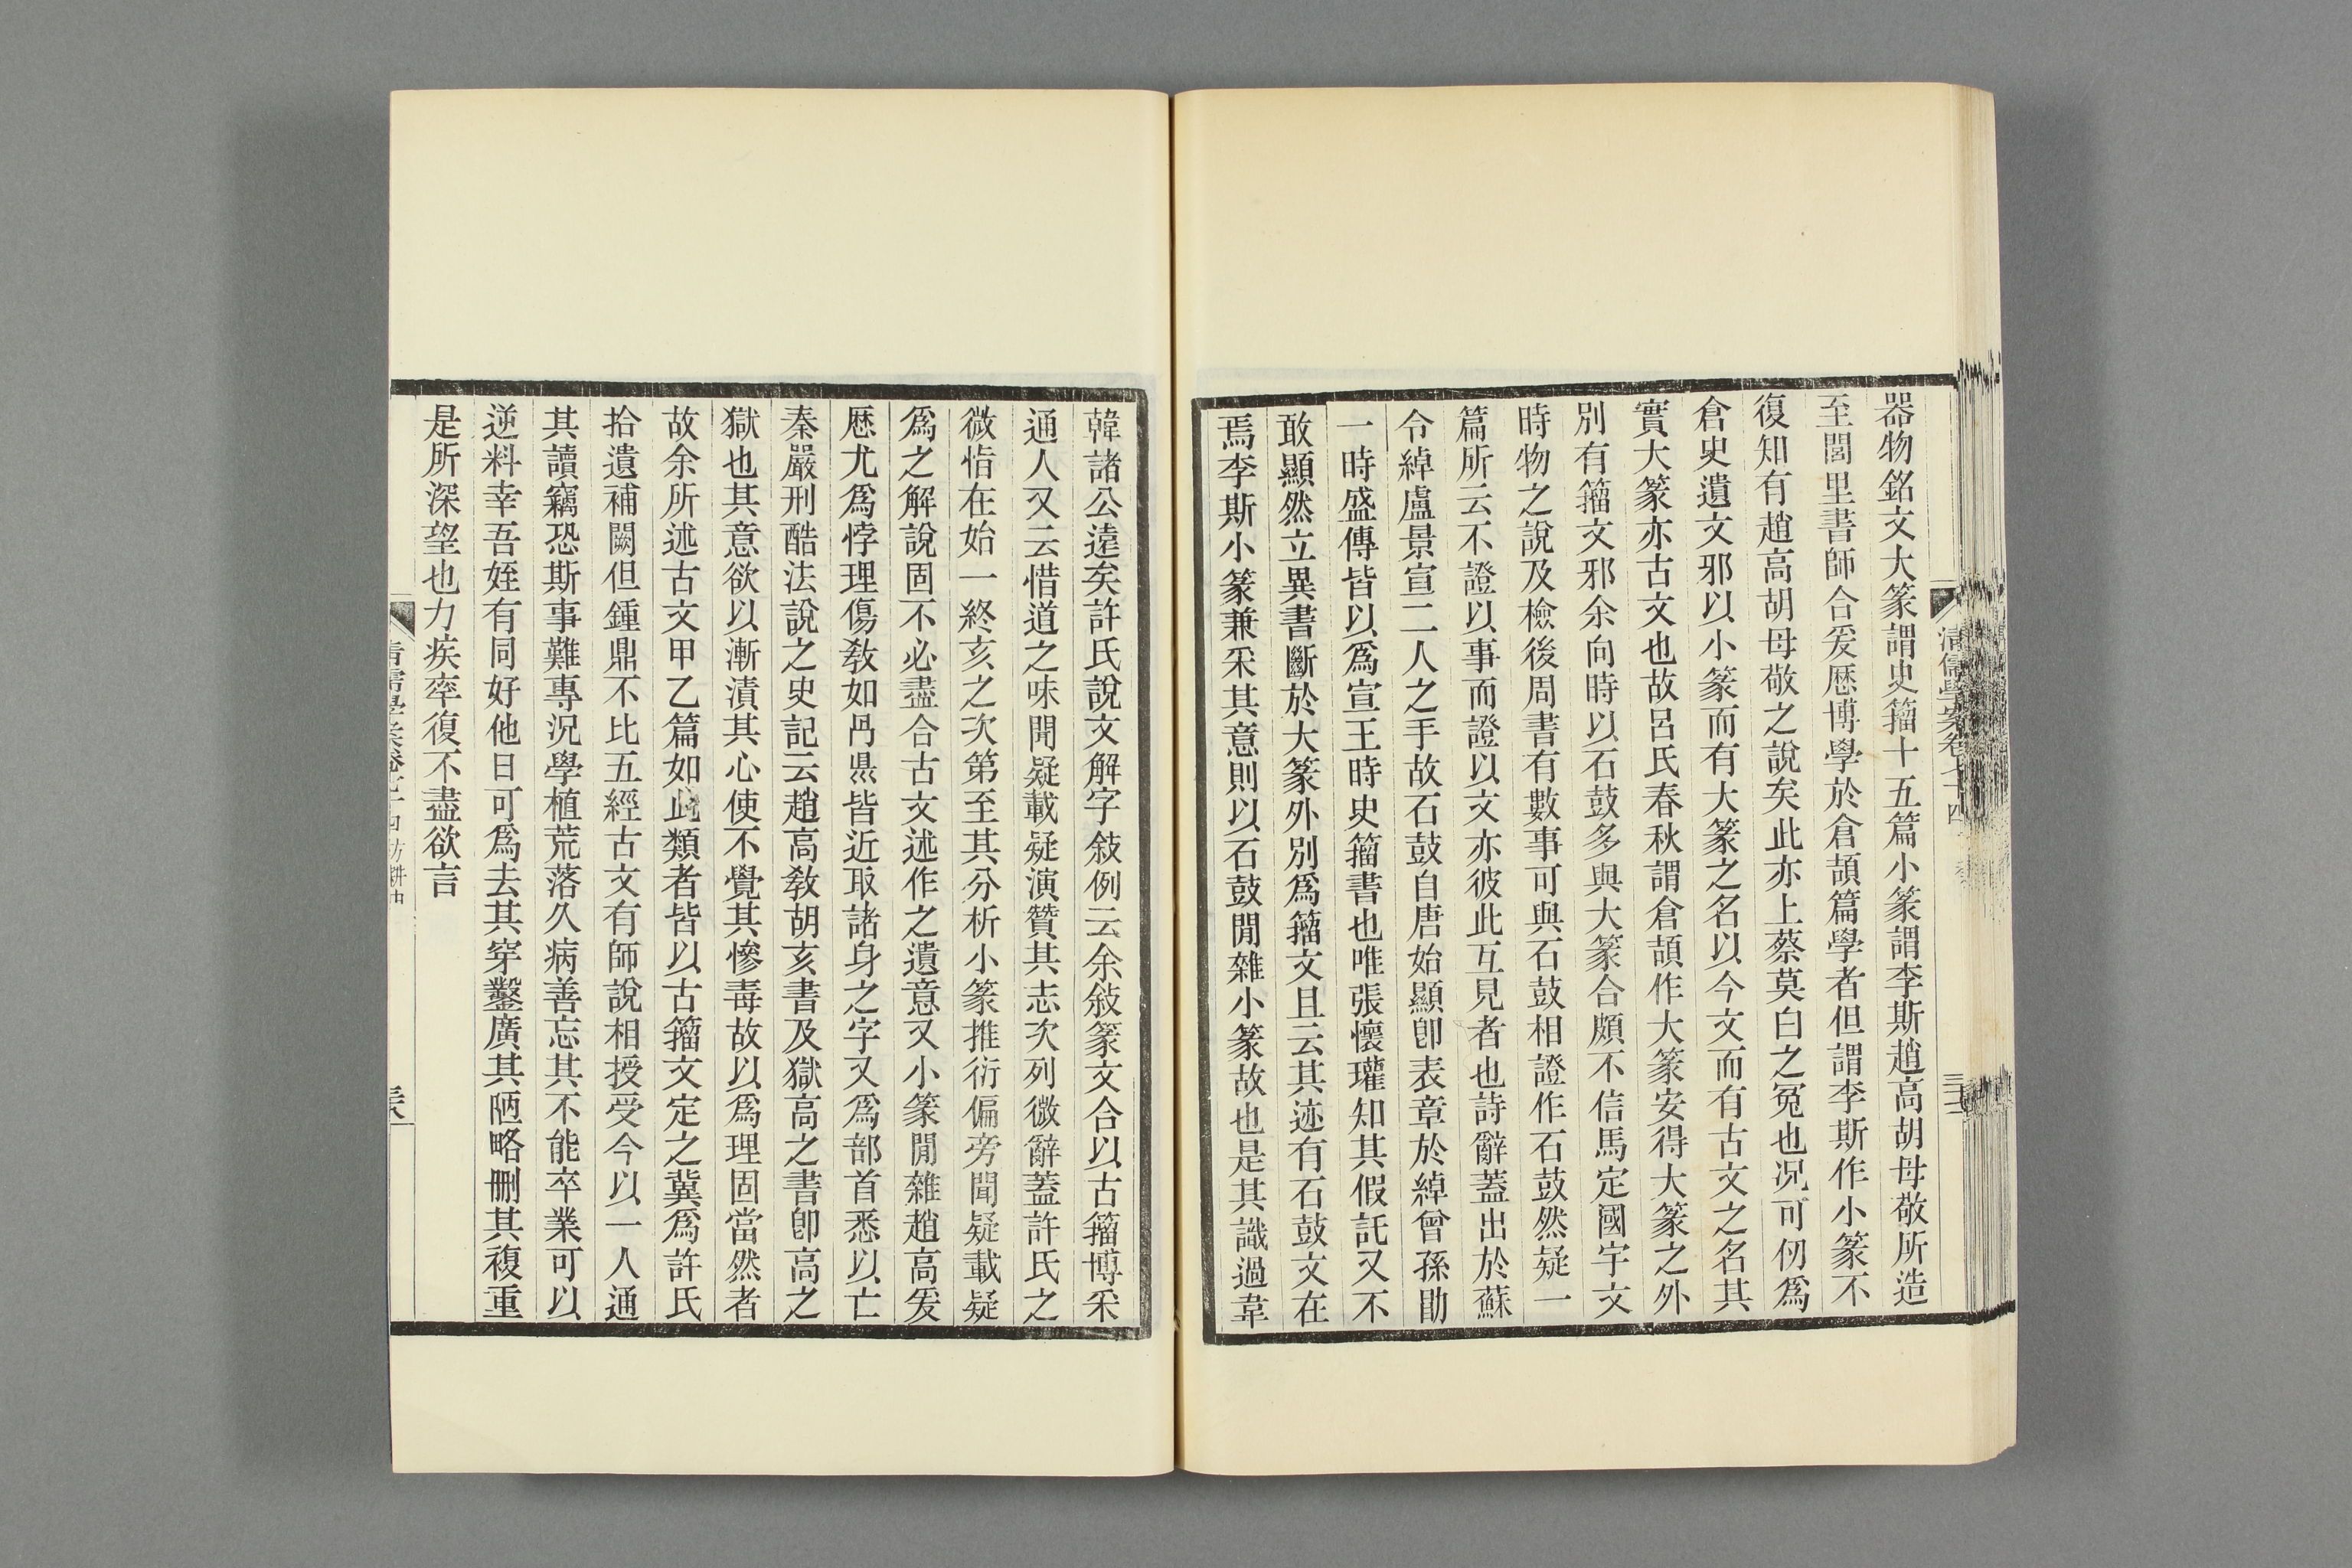 器物銘文大篆謂史籀十五篇小篆謂李斯趙高胡母敬所造
至閭里書師合爰歷博學於倉頡篇學者但謂李斯作小篆不
復知有趙高胡母敬之說矣此亦上蔡莫白之冤也況可仞爲
倉史遺文邪以小篆而有大篆之名以今文而有古文之名其
實大篆亦古文也故呂氏春秋謂倉頡作大篆安得大篆之外
別有籀文邪余向時以石鼓多與大篆合頗不信馬定國宇文
時物之說及檢後周書有數事可與石鼓相證作石鼓然疑一
篇所云不證以事而證以文亦彼此互見者也詩辭蓋出於蘇
令綽盧景宣二人之手故石鼓自唐始顯卽表章於綽曾孫勖
一時盛傳皆以爲宣王時史籀書也唯張懷瓘知其假託又不
敢顯然立異書斷於大篆外別爲籀文且云其迹有石鼓文在
焉李斯小篆兼采其意則以石鼓閒雜小篆故也是其識過韋
清儒學案卷七十四
韓諸公遠矣許氏說文解字敍例云余敍篆文合以古籀博采
通人又云惜道之味聞疑載疑演贊其志次列微辭蓋許氏之
微恉在始一終亥之次第至其分析小篆推衍偏旁聞疑載疑
爲之解說固不必盡合古文述作之遺意又小篆閒雜趙高爰
歷尤爲悖理傷敎如冎㬎皆近取諸身之字又爲部首悉以亡
秦嚴刑酷法說之史記云趙高敎胡亥書及獄高之書卽高之
獄也其意欲以漸漬其心使不覺其慘毒故以爲理固當然者
故余所述古文甲乙篇如此類者皆以古籀文定之冀爲許氏
拾遺補闕但鍾鼎不比五經古文有師說相授受今以一人通
其讀竊恐斯事難專況學植荒落久病善忘其不能卒業可以
逆料幸吾姪有同好他日可爲去其穿鑿廣其陋略刪其複重
是所深望也力疾率復不盡欲言